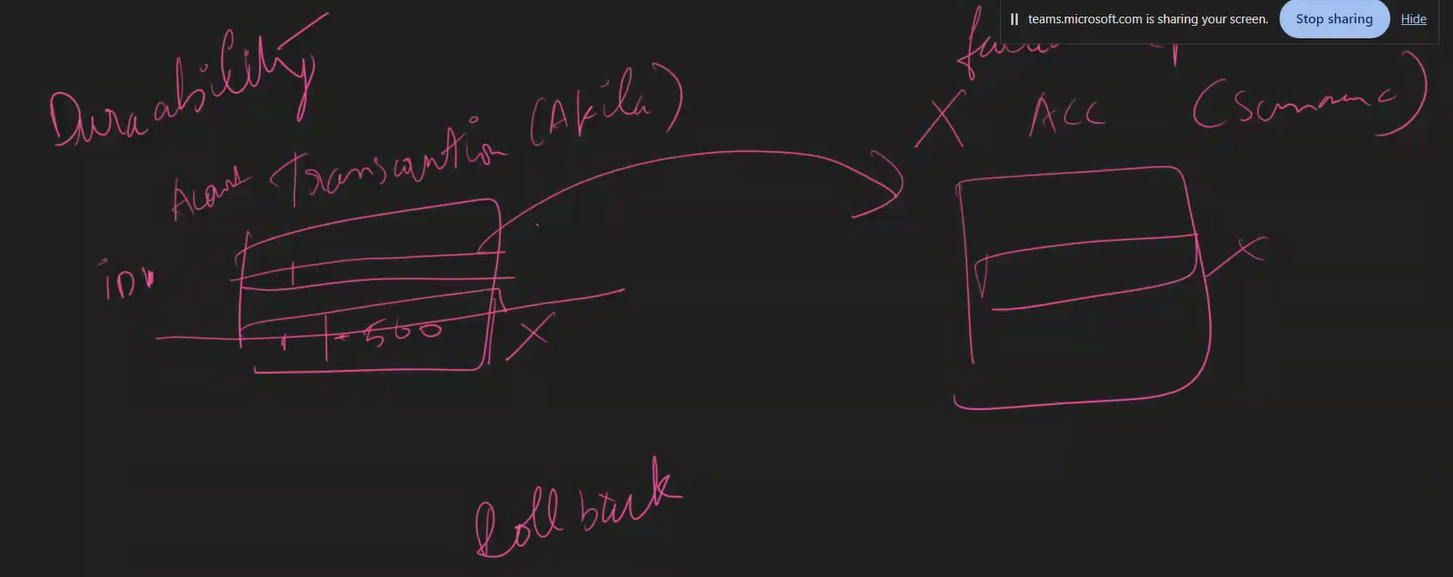 teams.microsoft.com is sharing your screen. Stop sharing Hide
Durability
Transcantion (Akila)
X Acc
ID
- 500 X
X
Roll back